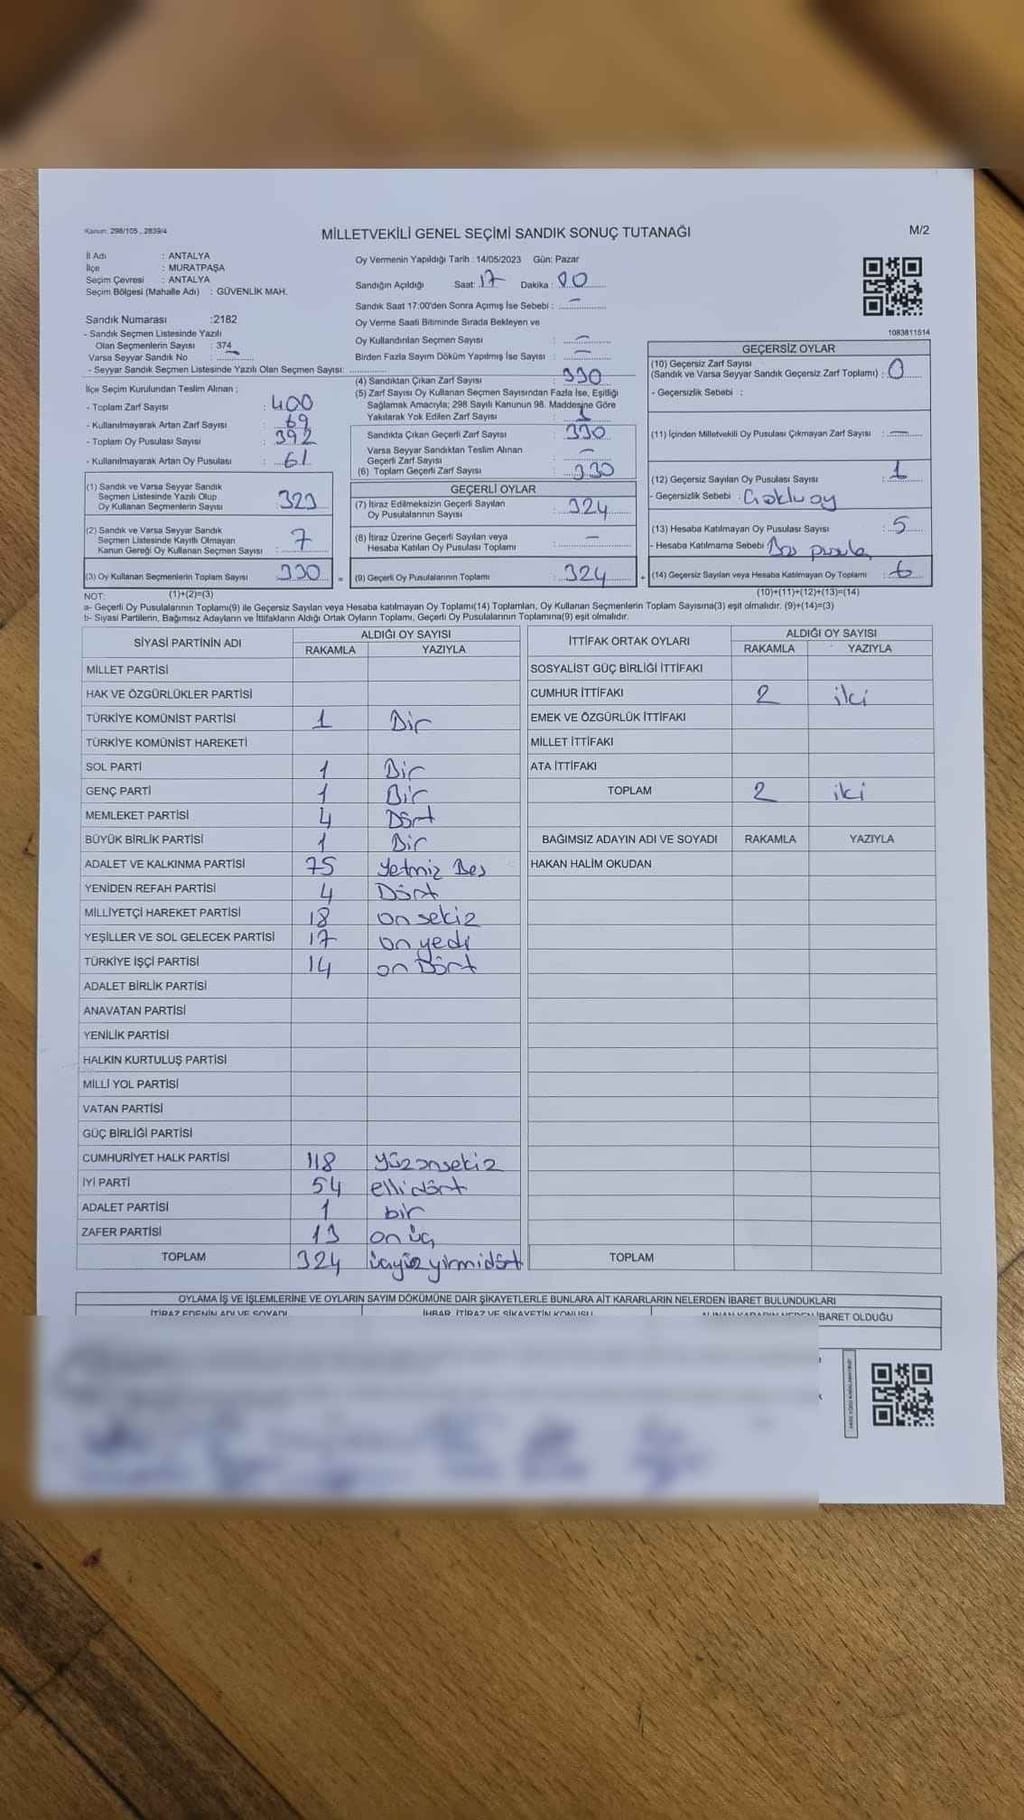 Kanun: 298/105 , 2839/4
MİLLETVEKİLİ GENEL SEÇİMİ SANDIK SONUÇ TUTANAĞI
M/2
İl Adı : ANTALYA
İlçe : MURATPAŞA
Seçim Çevresi : ANTALYA
Seçim Bölgesi (Mahalle Adı) : GÜVENLİK MAH.
Sandık Numarası :2182
- Sandık Seçmen Listesinde Yazılı
Olan Seçmenlerin Sayısı : 374
Varsa Seyyar Sandık No :
- Seyyar Sandık Seçmen Listesinde Yazılı Olan Seçmen Sayısı:
İlçe Seçim Kurulundan Teslim Alınan ;
- Toplam Zarf Sayısı : 400
- Kullanılmayarak Artan Zarf Sayısı : 69
- Toplam Oy Pusulası Sayısı : 392
- Kullanılmayarak Artan Oy Pusulası : 61
(1) Sandık ve Varsa Seyyar Sandık
Seçmen Listesinde Yazılı Olup
Oy Kullanan Seçmenlerin Sayısı : 323
(2) Sandık ve Varsa Seyyar Sandık
Seçmen Listesinde Kayıtlı Olmayan
Kanun Gereği Oy Kullanan Seçmen Sayısı : 7
(3) Oy Kullanan Seçmenlerin Toplam Sayısı : 330
Oy Vermenin Yapıldığı Tarih : 14/05/2023 Gün: Pazar
Sandığın Açıldığı Saat: 17 Dakika : 00
Sandık Saat 17:00'den Sonra Açımış İse Sebebi : –
Oy Verme Saati Bitiminde Sırada Bekleyen ve
Oy Kullandırılan Seçmen Sayısı : –
Birden Fazla Sayım Döküm Yapılmış İse Sayısı : –
(4) Sandıktan Çıkan Zarf Sayısı : 330
(5) Zarf Sayısı Oy Kullanan Seçmen Sayısından Fazla İse, Eşitliği
Sağlamak Amacıyla; 298 Sayılı Kanunun 98. Maddesine Göre
Yakılarak Yok Edilen Zarf Sayısı : 1
Sandıkta Çıkan Geçerli Zarf Sayısı : 330
Varsa Seyyar Sandıktan Teslim Alınan
Geçerli Zarf Sayısı : –
(6) Toplam Geçerli Zarf Sayısı : 330
GEÇERLİ OYLAR
(7) İtiraz Edilmeksizin Geçerli Sayılan
Oy Pusulalarının Sayısı : 324
(8) İtiraz Üzerine Geçerli Sayılan veya
Hesaba Katılan Oy Pusulası Toplamı : –
= (9) Geçerli Oy Pusulalarının Toplamı : 324
1083811514
GEÇERSİZ OYLAR
(10) Geçersiz Zarf Sayısı
(Sandık ve Varsa Seyyar Sandık Geçersiz Zarf Toplamı) : 0
- Geçersizlik Sebebi :
(11) İçinden Milletvekili Oy Pusulası Çıkmayan Zarf Sayısı : –
(12) Geçersiz Sayılan Oy Pusulası Sayısı : 1
- Geçersizlik Sebebi : Çoklu oy
(13) Hesaba Katılmayan Oy Pusulası Sayısı : 5
- Hesaba Katılmama Sebebi : Boş pusula
+ (14) Geçersiz Sayılan veya Hesaba Katılmayan Oy Toplamı : 6
NOT: (1)+(2)=(3)
(10)+(11)+(12)+(13)=(14)
a- Geçerli Oy Pusulalarının Toplamı(9) ile Geçersiz Sayılan veya Hesaba katılmayan Oy Toplamı(14) Toplamları, Oy Kullanan Seçmenlerin Toplam Sayısına(3) eşit olmalıdır. (9)+(14)=(3)
b- Siyasi Partilerin, Bağımsız Adayların ve İttifakların Aldığı Ortak Oyların Toplamı, Geçerli Oy Pusulalarının Toplamına(9) eşit olmalıdır.
SİYASİ PARTİNİN ADI ALDIĞI OY SAYISI
RAKAMLA YAZIYLA
MİLLET PARTİSİ
HAK VE ÖZGÜRLÜKLER PARTİSİ
TÜRKİYE KOMÜNİST PARTİSİ 1 Bir
TÜRKİYE KOMÜNİST HAREKETİ
SOL PARTİ 1 Bir
GENÇ PARTİ 1 Bir
MEMLEKET PARTİSİ 4 Dört
BÜYÜK BİRLİK PARTİSİ 1 Bir
ADALET VE KALKINMA PARTİSİ 75 Yetmiz Beş
YENİDEN REFAH PARTİSİ 4 Dört
MİLLİYETÇİ HAREKET PARTİSİ 18 on sekiz
YEŞİLLER VE SOL GELECEK PARTİSİ 17 on yedi
TÜRKİYE İŞÇİ PARTİSİ 14 on Dört
ADALET BİRLİK PARTİSİ
ANAVATAN PARTİSİ
YENİLİK PARTİSİ
HALKIN KURTULUŞ PARTİSİ
MİLLİ YOL PARTİSİ
VATAN PARTİSİ
GÜÇ BİRLİĞİ PARTİSİ
CUMHURİYET HALK PARTİSİ 118 yüzonsekiz
İYİ PARTİ 54 ellidört
ADALET PARTİSİ 1 bir
ZAFER PARTİSİ 13 on üç
TOPLAM 324 üçyüzyirmidört
İTTİFAK ORTAK OYLARI ALDIĞI OY SAYISI
RAKAMLA YAZIYLA
SOSYALİST GÜÇ BİRLİĞİ İTTİFAKI
CUMHUR İTTİFAKI 2 iki
EMEK VE ÖZGÜRLÜK İTTİFAKI
MİLLET İTTİFAKI
ATA İTTİFAKI
TOPLAM 2 iki
BAĞIMSIZ ADAYIN ADI VE SOYADI RAKAMLA YAZIYLA
HAKAN HALİM OKUDAN
TOPLAM
OYLAMA İŞ VE İŞLEMLERİNE VE OYLARIN SAYIM DÖKÜMÜNE DAİR ŞİKAYETLERLE BUNLARA AİT KARARLARIN NELERDEN İBARET BULUNDUKLARI
İTİRAZ EDENİN ADI VE SOYADI İHBAR, İTİRAZ VE ŞİKAYETİN KONUSU ALINAN KARARIN NEDEN İBARET OLDUĞU